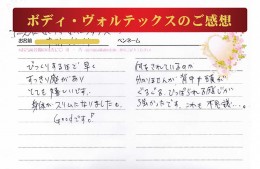 ボディ・ヴォルテックスのご感想
お名前
ペンネーム
びっくりするほど早く
すっきり感があり
とても嬉しいです。
身体がスリムになりました。
Goodです♪
何をされているのか
分かりませんが、背中や頭が
ぐるぐる、ひっぱられる感じが
強かったです。これも不思議…。